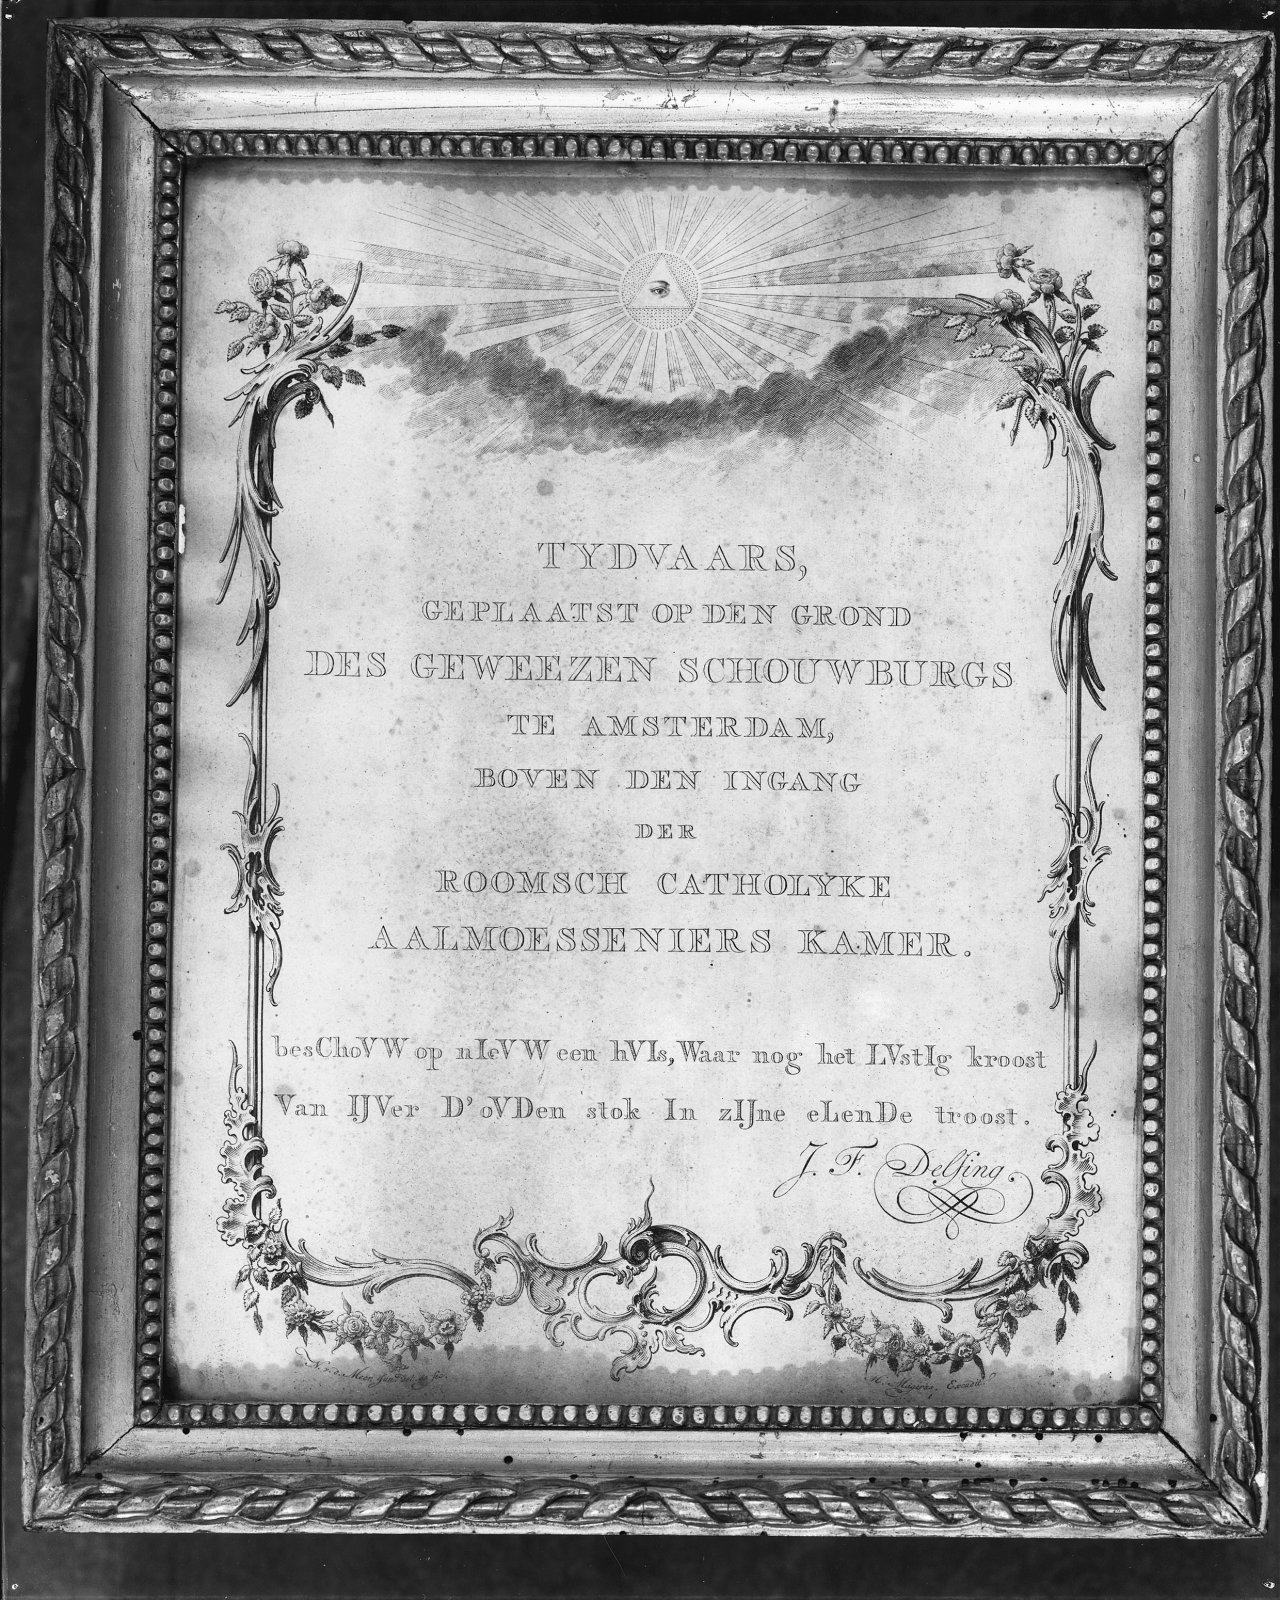 TYDVAARS,
GEPLAATST OP DEN GROND
DES GEWEEZEN SCHOUWBURGS
TE AMSTERDAM,
BOVEN DEN INGANG
DER
ROOMSCH CATHOLYKE
AALMOESSENIERS KAMER.
besChoVW op nIeVW een hVIs, Waar nog het LVstIg kroost
Van IJVer D' oVDen stok In zIJne eLenDe troost.
J. F. Delsing.